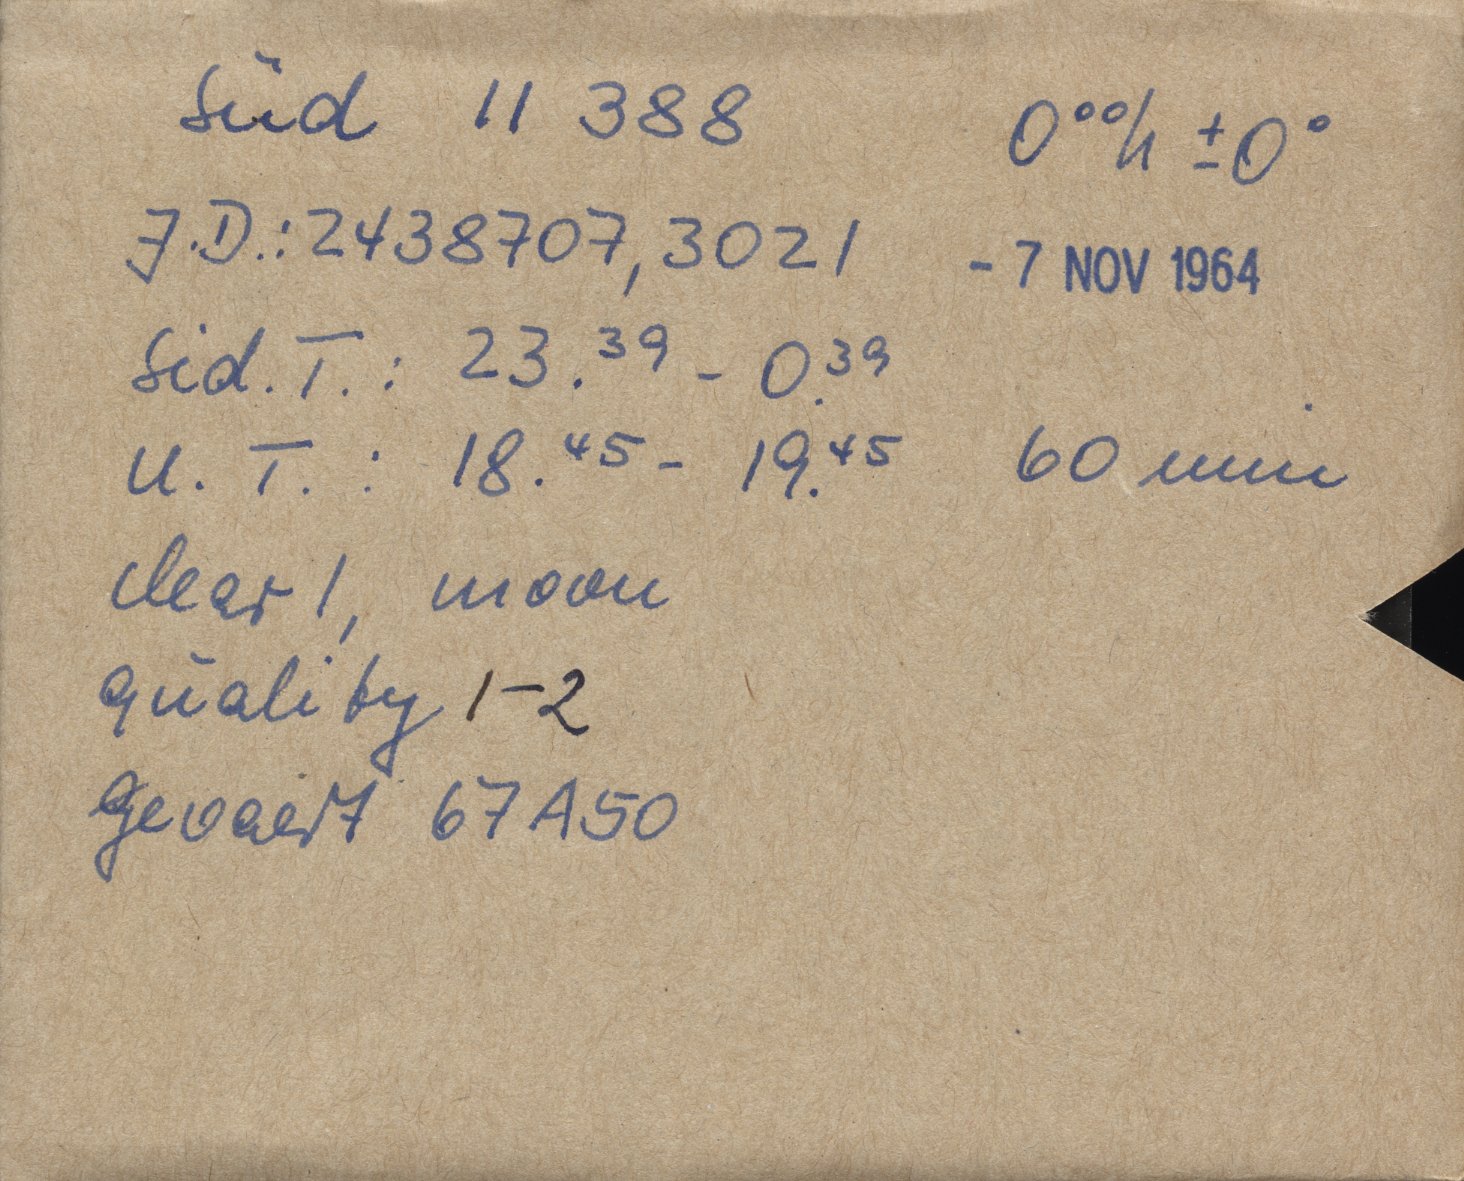 Süd 11 388 0°°h ±0°
J.D.: 2438707,3021 - 7 NOV 1964
Sid. T. : 23.³⁹ - 0.³⁹
U. T. : 18.⁴⁵ - 19.⁴⁵ 60 min
clear 1, moon
quality 1-2
Gevaert 67A50